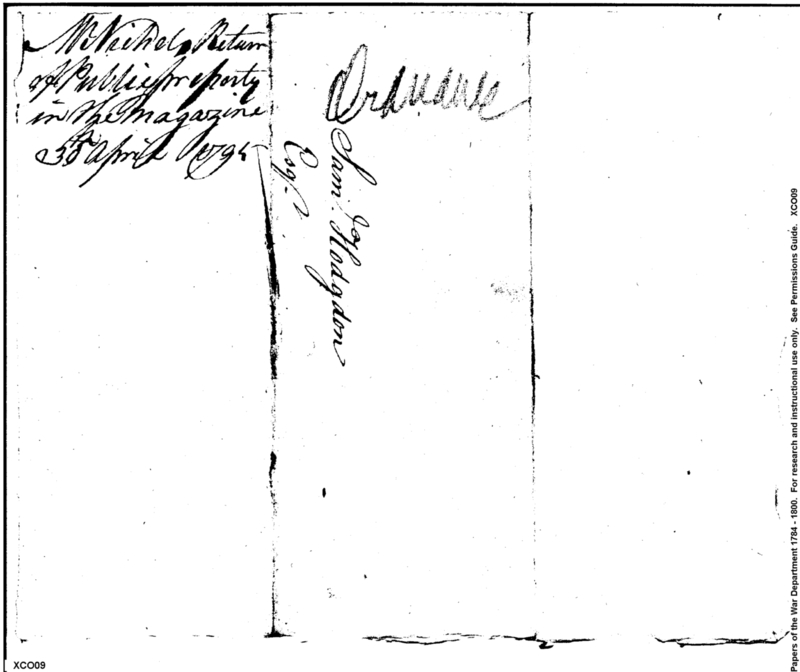 Mr Nichols Return
of Public property
in the Magazine
April 1795
Ordnance
Saml. Hodgdon
Esqr.
Papers of the War Department 1784 - 1800. For research and instructional use only. See Permissions Guide. XCO09
XCO09